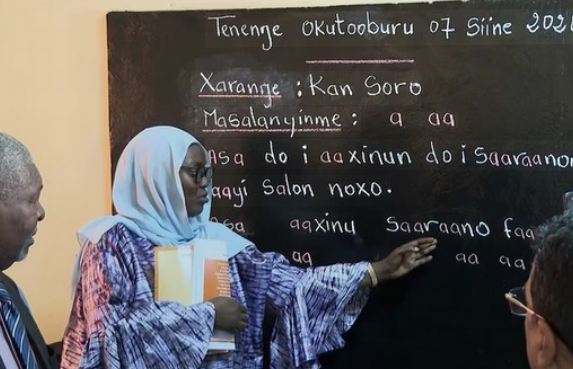 Tenenge Okutooburu 07 Siine
Xarange : Kan Soro
Masalanyinme : a aa
Asa do i aaxinun do i Saaraano
Salon noxo.
aaxinu Saaraano
aa aa aa